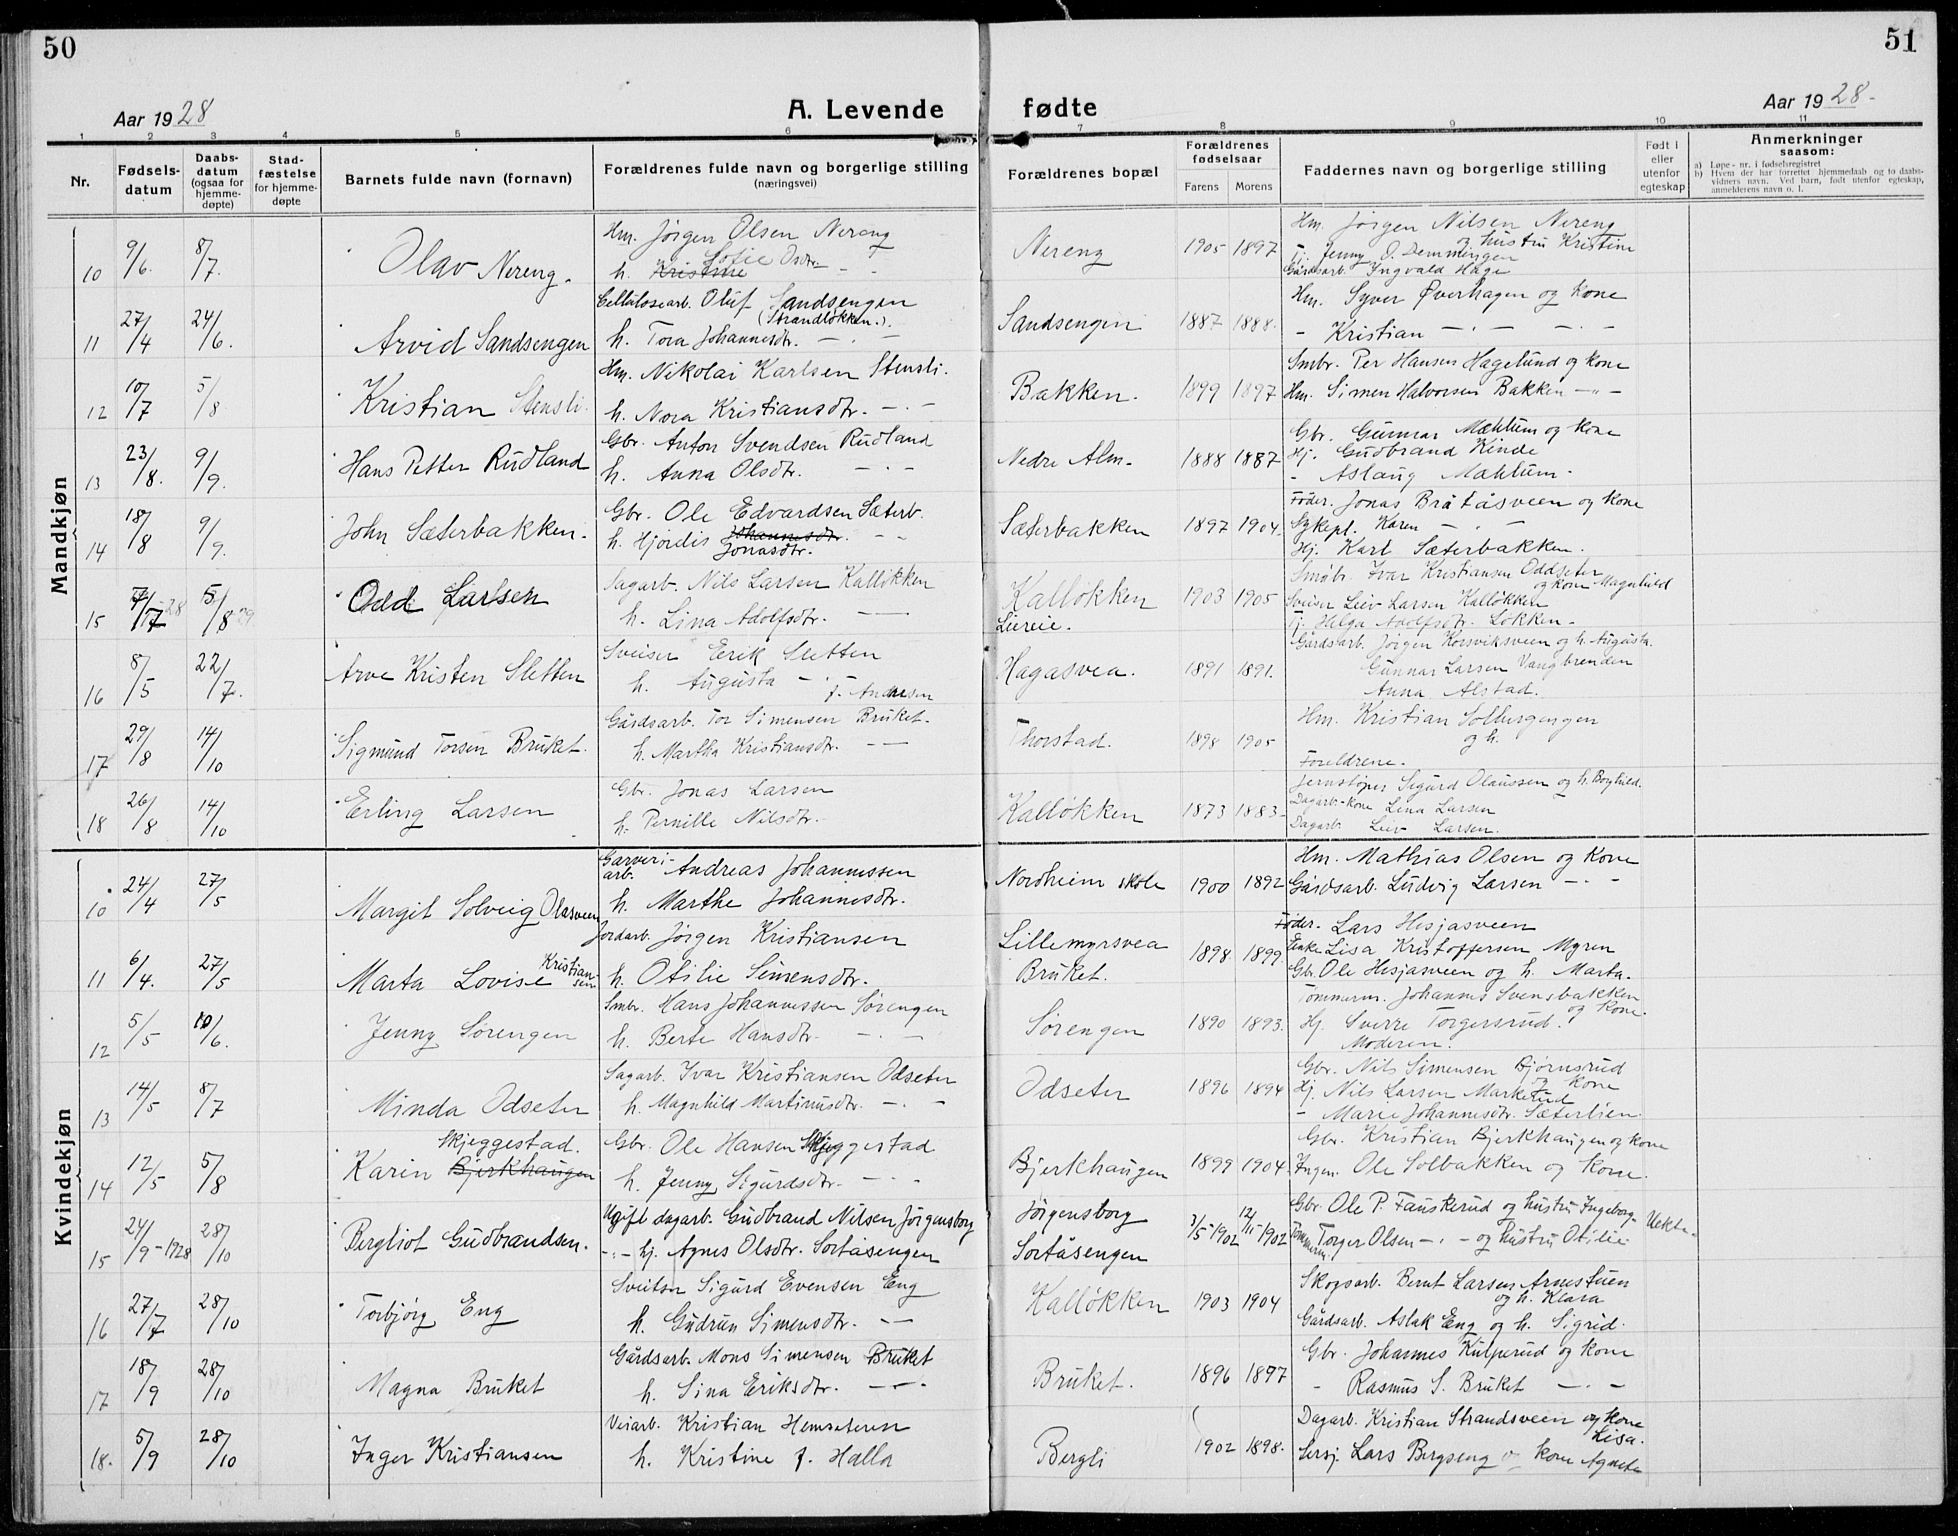 50
51
Aar 1928
A. Levende fødte
Aar 1928-
1 2 3 4 5 6 7 8 9 10 11
Nr.
Fødsels-datum
Daabs-datum (ogsaa for hjemme-døpte)
Stad-fæstelse for hjemme-døpte
Barnets fulde navn (fornavn)
Forældrenes fulde navn og borgerlige stilling (næringsvei)
Forældrenes bopæl
Forældrenes fødselsaar
Farens Morens
Faddernes navn og borgerlige stilling
Født i eller utenfor egteskap
Anmerkninger saasom:
a) Løpe-nr. i fødselsregistret
b) Hvem der har forrettet hjemmedaab og to daabs-
vidners navn. Ved barn, født utenfor egteskap,
anmelderens navn o. l.
Mandkjøn
10 9/6. 8/7. Olav Nereng.
Hm. Jørgen Olsen Nereng
h. Kristine Sofie Osdtr - -
Nereng 1905 1897
Hm. Jørgen Nilsen Nereng
og hustru Kristine
Tj. Jenny O. Demmingen
Gårdsarb. Ingvald Hage
11 27/4 24/6. Arvid Sandsengen
Cellulosearb. Oluf Sandsengen
(Strandløkken.).
h. Tora Johannesdtr. - . -
Sandsengen 1887 1888.
Hm. Syver Øverhagen og kone
- Kristian - . - - . -
12 10/7 5/8 Kristian Stensli.
Hm. Nikolai Karlsen Stensli.
h. Nora Kristiansdtr. - . -
Bakken. 1899 1897
Smbr. Per Hansen Hagelund og kone
Hm. Simen Halvorsen Bakken - " -
13 23/8. 9/9. Hans Petter Rudland
Gbr. Anton Svendsen Rudland
h. Anna Olsdtr. - . -
Nedre Alm- 1888 1887
Gbr. Gunnar Mæhlum og kone
Hj. Gudbrand Kinde
- Aslaug Mæhlum -
14 18/8 9/9. John Sæterbakken.
Gbr. Ole Edvardsen Sæterb.
h. Hjördis Johannesdtr. - -
Jonasdtr.
Sæterbakken 1897 1904.
Føder. Jonas Bråtåsveen og kone
Sykepl. Karen - . -
Hj. Karl Sæterbakken.
15 4/7 28 5/8 29 Odd Larsen
Sagarb. Nils Larsen Kalløkken
h. Lina Adolfsdtr. - -
Kalløkken 1903 1905
Smbr. Ivar Kristiansen Oddseter
og kone Magnhild
Sveiser Leiv Larsen Kalløkken
Tj. Helga Adolfsdtr. Løkken -
16 8/5 22/7. Arve Kristen Sletten
Sveiser Erik Sletten
h. Augusta - . f. Andresen
Liereie.
Hagasvea. 1891 1891.
Gårdsarb. Jørgen Korsviksveen og h. Augusta.
Gunnar Larsen Vangbrenden
Anna Alstad.
17 29/8 14/10 Sigmund Torsen Bruket.
Gårdsarb. Tor Simensen Bruket.
h. Martha Kristiansdtr. - -
Thorstad. 1898 1905
Hm. Kristian Solbergengen
og h.
Foreldrene.
18 26/8 14/10 Erling Larsen
Gbr. Jonas Larsen
h. Pernille Nilsdtr.
Kalløkken 1873 1883-
Jernstøper Sigurd Olaussen og h. Borghild.
Dagarb.-kone Lina Larsen
Dagarb. Leiv Larsen.
Kvindekjøn
10 24/4 27/5 Margit Solveig Olasveen
Garveri-arb. Andreas Johannessen
h. Marthe Johannesdtr.
Nordheim skole 1900 1892
Hm. Mathias Olsen og kone
Gårdsarb. Ludvig Larsen - . -
11 6/4. 27/5 Marta Lovise Kristiansen
Jordarb. Jørgen Kristiansen
h. Otilie Simensdtr.
Lillemyrsvea
Bruket. 1898 1899
Føder. Lars Hesjasveen
Enke Lisa Kristoffersen Myren
Gbr. Ole Hesjasveen og h. Marta.
12 5/5 10/6. Jenny Sørengen
Smbr. Hans Johannessen Sørengen
h. Berte Hansdtr. - . -
Sørengen 1890 1893.
Tømmerm. Johannes Svensbakken
og kone.
Hj. Sverre Torgersrud.
Moderen.
13 14/5 8/7 Minda Odseter
Sagarb. Ivar Kristiansen Odseter
h. Magnhild Martinusdtr. - . -
Odseter 1896 1894
Gbr. Nils Simensen Bjørnsrud
og kone
Hj. Nils Larsen Markerud
- Marie Johannesdtr. Sæterlien.
14 12/5 5/8 Karin Bjerkhaugen Skjeggestad.
Gbr. Ole Hansen Skjeggestad
h. Jenny Sigurdsdtr. - . -
Bjerkhaugen 1899 1904
Gbr. Kristian Bjerkhaugen og kone
Ingen. Ole Solbakken og kone.
15 24/9-1928 28/10 Bergliot Gudbrandsen.
Ugift dagarb. Gudbrand Nilsen Jørgensborg
- " - hj. Agnes Olsdtr. Sortåsengen
Jørgensborg
Sortåsengen 3/5-1902 12/11-1902
Gbr. Ole P. Fauskerud og hustru Ingeborg-
Tømmerm. Torger Olsen - . - og hustru Otilie
Uekte.
16 27/7 28/10 Torbjørg Eng
Sveiser Sigurd Evensen Eng
h. Gudrun Simensdtr. - -
Kalløkken 1903 1904
Skogsarb. Bernt Larsen Arnestuen
og h. Klara
Gårdsarb. Aslak Eng og h. Sigrid.
17 18/9 28/10 Magna Bruket
Gårdsarb. Mons Simensen Bruket
h. Sina Eriksdtr. - . -
Bruket. 1896 1897
Gbr. Johannes Kulperud og kone
- Rasmus S. Bruket - . -
18. 5/9 28/10 Inger Kristiansen
Veiarb. Kristian Hemseteren
h. Kristine f. Halla
Bergli 1902 1898.
Dagarb. Kristian Strandsveen og kone
Lisa.
Sersj. Lars Bergseng og kone Agnete